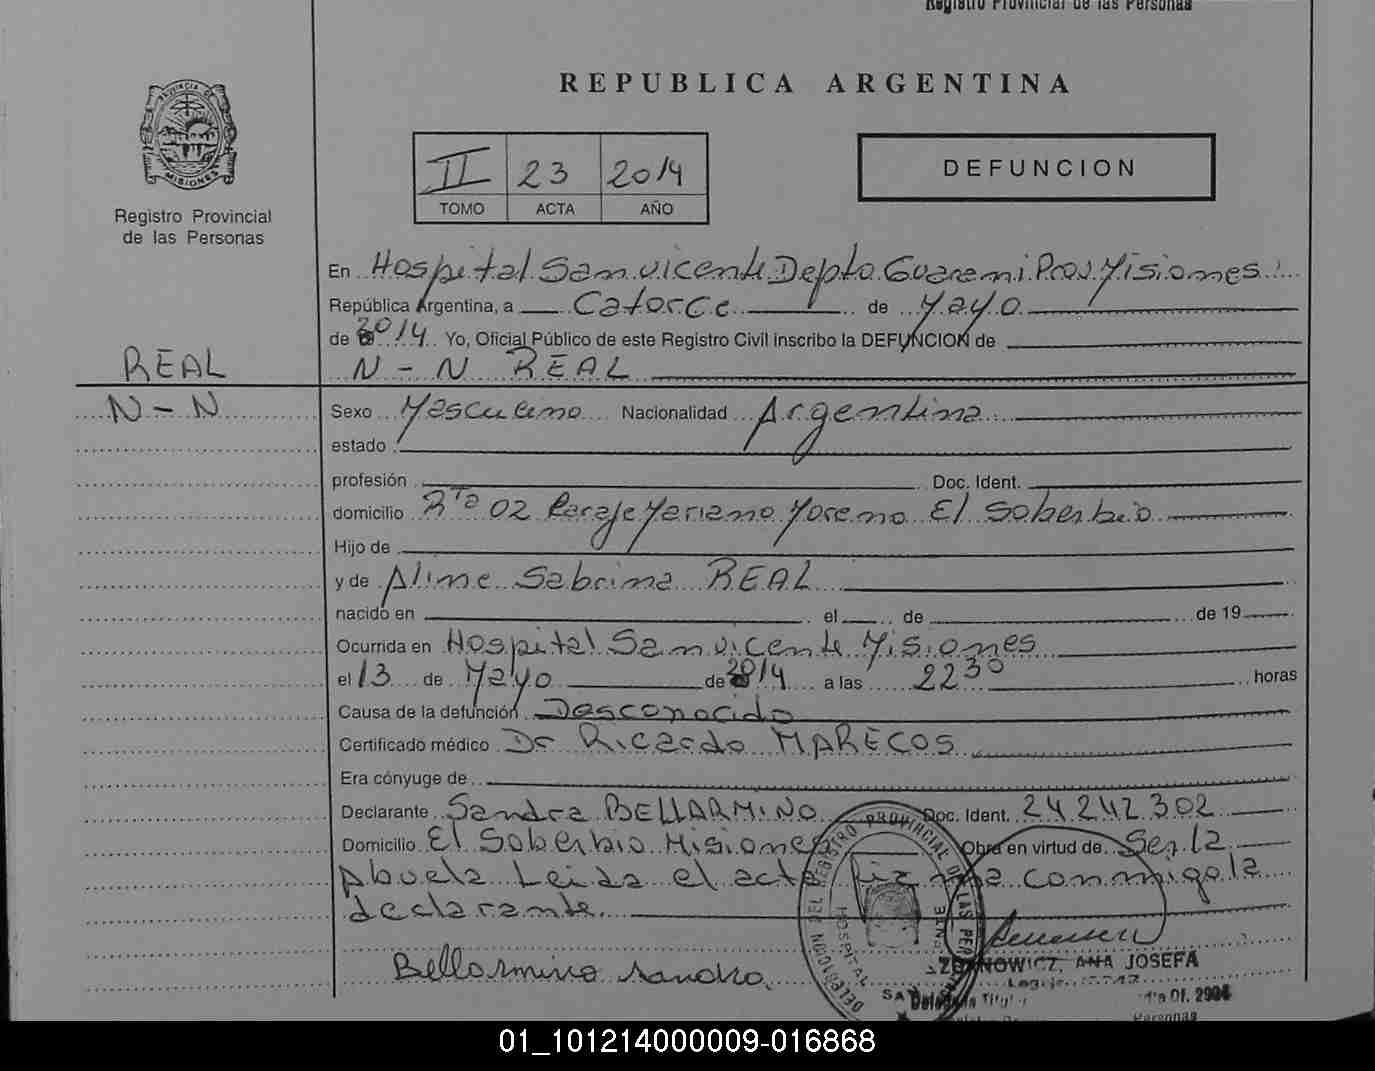 Registro Provincial de las Personas
REPUBLICA ARGENTINA
II 23 2014
TOMO ACTA AÑO
DEFUNCION
PROVINCIA DE MISIONES
Registro Provincial
de las Personas
REAL
N-N
En Hospital San vicente Depto Guarani Prov Misiones
República Argentina, a Catorce de Mayo
de 2014 Yo, Oficial Público de este Registro Civil inscribo la DEFUNCION de
N-N REAL
Sexo Masculino Nacionalidad Argentina
estado
profesión Doc. Ident.
domicilio Rta 02 Paraje Mariano Moreno El Soberbio
Hijo de
y de Aline Sabrina REAL
nacido en el de de 19
Ocurrida en Hospital San vicente Misiones
el 13 de Mayo de 2014 a las 22 30 horas
Causa de la defunción Desconocido
Certificado médico Dr Ricardo MARECOS
Era cónyuge de
Declarante Sandra BELLARMINO Doc. Ident. 24.242.302
Domicilio El Soberbio Misiones Obra en virtud de Ser la
Abuela Leida el acta firma conmigo la
declarante
Bellarmino Sandra
DELEGACION DEL REGISTRO PROVINCIAL DE LAS PERSONAS
HOSPITAL
ANA JOSEFA
Of. 2904
Personas
01_101214000009-016868